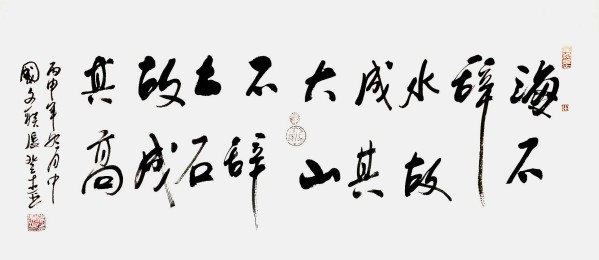 海不
辞
水故
成其
大山
不辞
土石
故成
其高
丙申年冬月中
國文联張